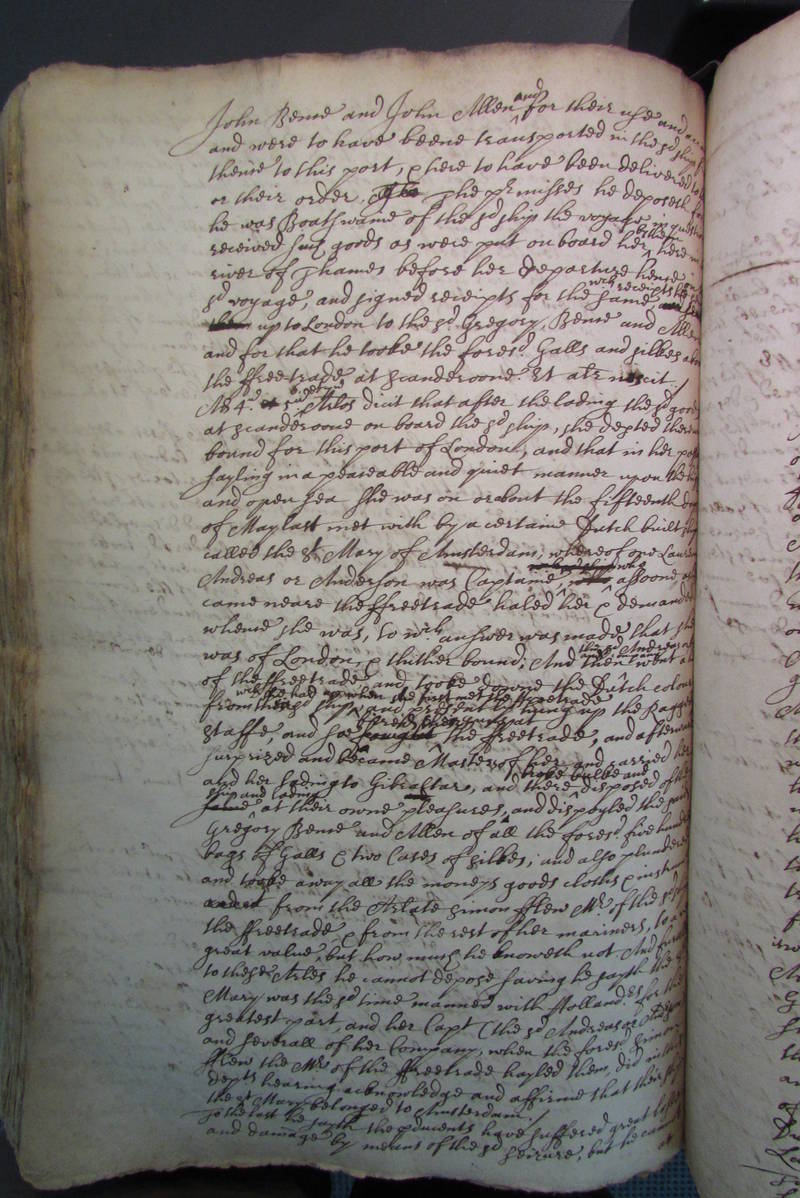 John Beme and John Allen and for their use and
and were to have beene transported in the sd ship
thence to this port, & here to have been delivered to
or their order. The prmisses he deposeth for
he was Boatswaine of the sd ship the voyage in
received such goods as were put on board her here in
river of Thames before her departure hence in
sd voyage, and signed receipts for the same wch receipts
up to London to the sd Gregory, Beme and Allen
and for that he tooke the foresd. Galls and silkes
the ffreetrade at Scanderoone. Et alr nescit./
Ad 4. Arlos dicit that after the lading the sd goods
at Scanderoone on board the sd ship, she depted thence
bound for this port of London, and that in her
sayling in a peaceable and quiet manner upon the
and open sea she was on or about the fifteenth
of May last met with by a certaine Dutch built ship
called the St. Mary of Amsterdam, whereof one
Andreas or Anderson was Captaine, assoone as
came neare the ffreetrade haled her & demanded
whence she was, to wch answer was made that she
was of London, & thither bound; And then the sd Andreas went
of the ffreetrade and tooke downe the Dutch colours
wch he had up when she first met the ffreetrade
from the sd ship, and presently hung up the Ragged
Staffe, and soe fought the ffreetrade, and afterwards
surprized and became Masters of her and carried her
and her lading to Gibraltar, and there broke bulke and disposed of the
ship and lading at their owne pleasures, and dispoyled the
Gregory Beme and Allen of all the foresd. five hundred
bags of Galls & two Cases of silkes, and also plundered
and tooke away all the moneys goods cloths &
from the Arlate Simon fflew Mr. of the sd
the ffreetrade & from the rest of her mariners, to a
great value, but how much he knoweth not And
to these Arles he cannot depose saving he sayth the
Mary was the sd time manned with Hollanders for the
greatest part, and her Capt (the sd Andreas or
and severall of her Company, when the foresd Simon
fflew the Mr. of the ffreetrade hayled them, did in this
depts hearing acknowledge and affirme that their
the St Mary belonged to Amsterdam./
To the last he sayth the pducents have suffered great losse
and damage by meanes of the sd seizure, but he